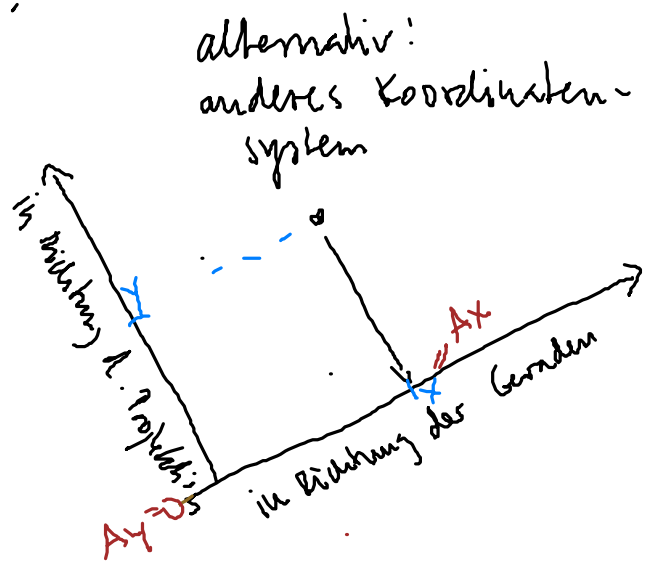 alternativ:
anderes Koordinaten-
system
in Richtung d. Projektion
Y
x
Ax
in Richtung der Geraden
Ay=0